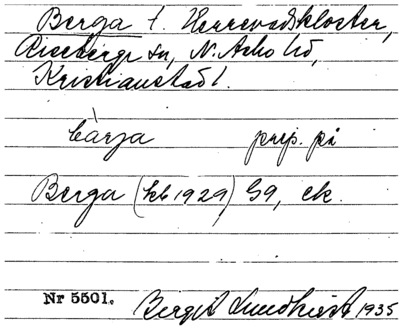 Berga l. Herrevadskloster,
Riseberga sn, N. Åsbo hd,
Kristianstad l.
bàrja prep. på
Berga (kb 1929) G9, ek.
Nr 5501. Bergit Lundkvist 1935